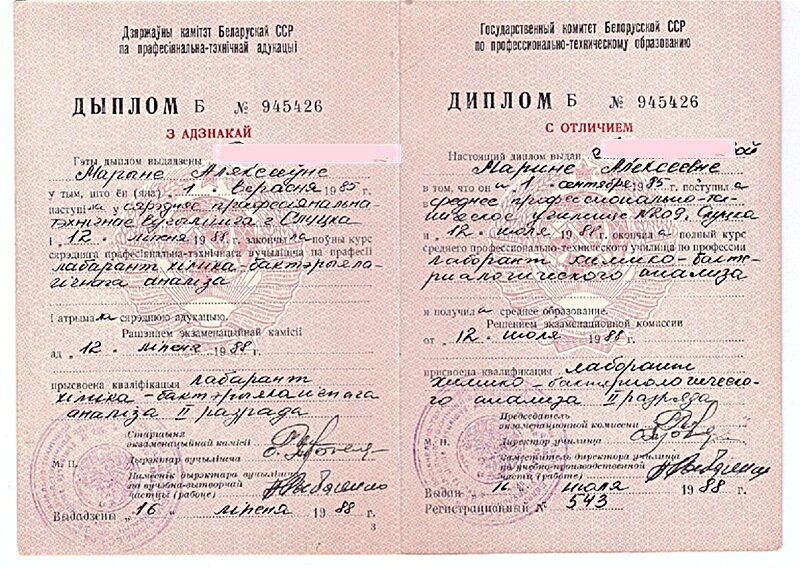 Дзяржаўны камітэт Беларускай ССР
па прафесіянальна-тэхнічнай адукацыі
ДЫПЛОМ Б № 945426
З АДЗНАКАЙ
Гэты дыплом выдадзены
Марыне Аляксеўне
у тым, што ён (яна) 1. верасня 1985 г.
паступіла у сярэдняе прафесіянальна-
тэхнічнае вучылішча г. Слуцка
і 12. ліпеня 1988 г. закончыла поўны курс
сярэдняга прафесіянальна-тэхнічнага вучылішча па прафесіі
лабарант хіміка-бактэрыяла-
гічнага аналіза
і атрымала сярэднюю адукацыю.
Рашэннем экзаменацыйнай камісіі
ад „12. ліпеня 1988 г.
прысвоена кваліфікацыя лабарант
хіміка-бактэрыялагічнага
аналіза II разрада
Старшыня
экзаменацыйнай камісіі
М. П. Дырэктар вучылішча
Намеснік дырэктара вучылішча
па вучэбна-вытворчай
частцы (рабоце)
Выдадзены „16 ліпеня 1988 г.
3
Государственный комитет Белорусской ССР
по профессионально-техническому образованию
ДИПЛОМ Б № 945426
С ОТЛИЧИЕМ
Настоящий диплом выдан ой
Марине Алексеевне
в том, что он а 1. сентября 1985 г. поступила
среднее профессионально-тех-
ническое училище №209, Слуцка
и 12. июля 1988 г. окончил а полный курс
среднего профессионально-технического училища по профессии
лаборант химико-бакте-
риологического анализа
и получил а среднее образование.
Решением экзаменационной комиссии
от „12. июля 1988 г.
присвоена квалификация лаборант
химико-бактериологическо-
го анализа II разряда
Председатель
экзаменационной комиссии
М. П. Директор училища
Заместитель директора училища
по учебно-производственной
части (работе)
Выдан „16 июля 1988 г.
Регистрационный № 543